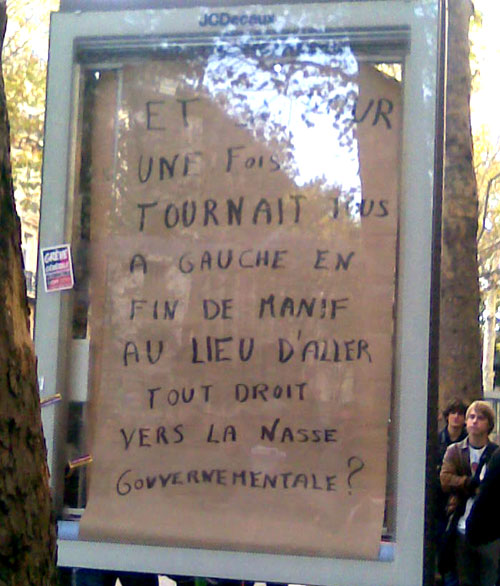 JCDecaux
ET
UNE FOIS
TOURNAIT TOUS
A GAUCHE EN
FIN DE MANIF
AU LIEU D'ALLER
TOUT DROIT
VERS LA NASSE
GOUVERNEMENTALE?
GRÈVE
GÉNÉRALE